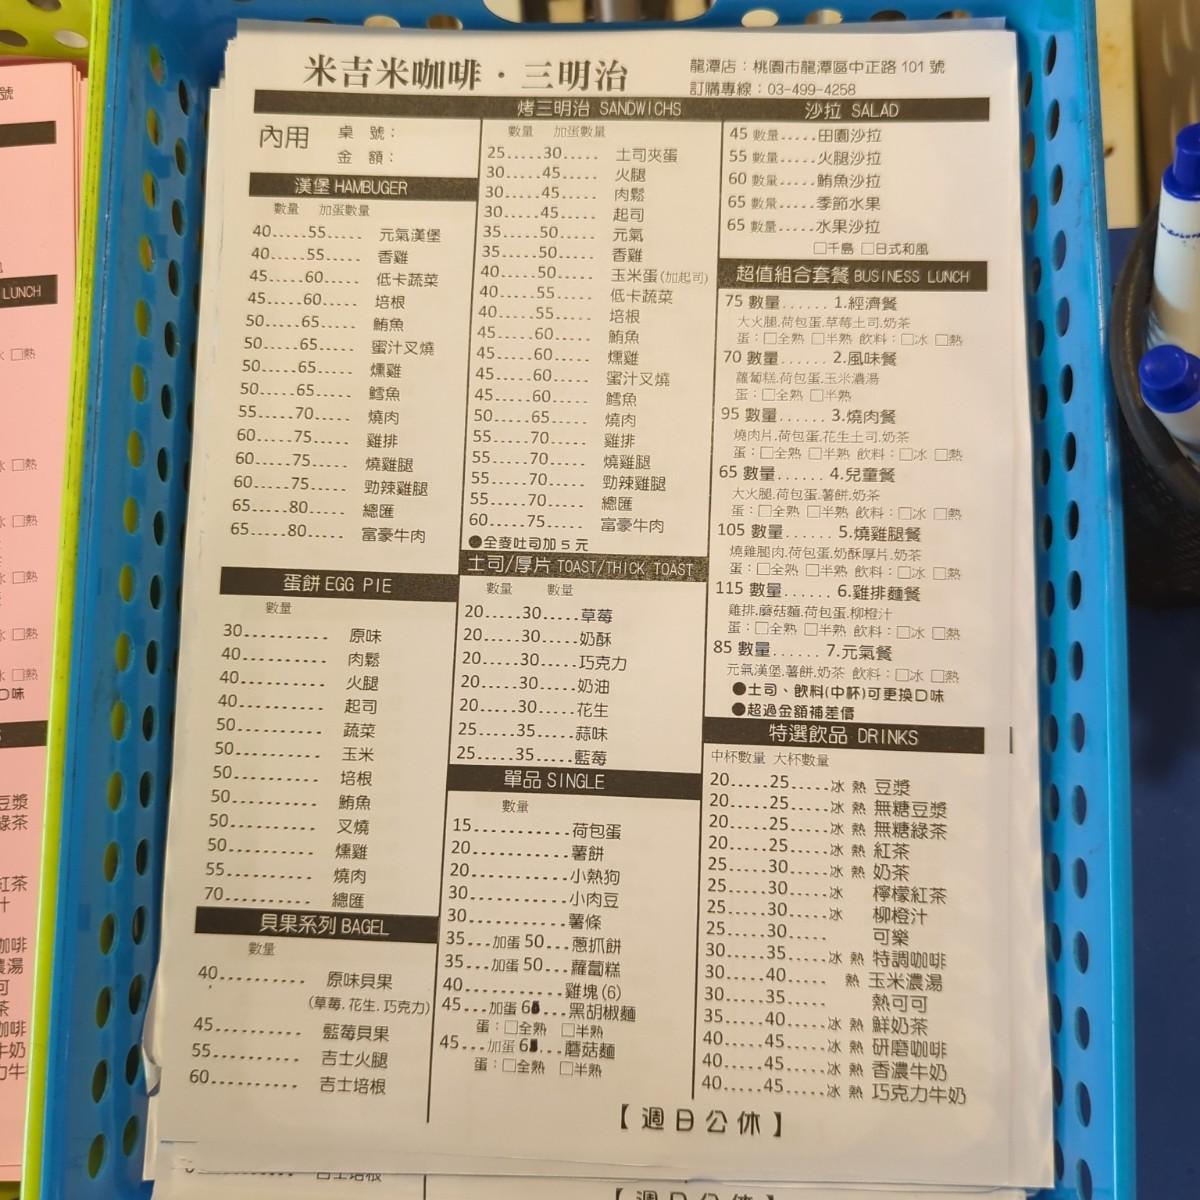 米吉米咖啡·三明治
龍潭店：桃園市龍潭區中正路101號
訂購專線：03-499-4258
內用
桌 號：
金 額：
漢堡 HAMBUGER
數量 加蛋數量
40.....55..... 元氣漢堡
40.....55..... 香雞
45.....60..... 低卡蔬菜
45.....60..... 培根
50.....65..... 鮪魚
50.....65..... 蜜汁叉燒
50.....65..... 燻雞
50.....65..... 鱈魚
55.....70..... 燒肉
60.....75..... 雞排
60.....75..... 燒雞腿
60.....75..... 勁辣雞腿
65.....80..... 總匯
65.....80..... 富豪牛肉
蛋餅 EGG PIE
數量
30.......... 原味
40.......... 肉鬆
40.......... 火腿
40.......... 起司
50.......... 蔬菜
50.......... 玉米
50.......... 培根
50.......... 鮪魚
50.......... 叉燒
50.......... 燻雞
55.......... 燒肉
70.......... 總匯
貝果系列 BAGEL
數量
40.......... 原味貝果
(草莓.花生.巧克力)
45.......... 藍莓貝果
55.......... 吉士火腿
60.......... 吉士培根
烤三明治 SANDWICHS
數量 加蛋數量
25.....30..... 土司夾蛋
30.....45..... 火腿
30.....45..... 肉鬆
30.....45..... 起司
35.....50..... 元氣
35.....50..... 香雞
40.....50..... 玉米蛋(加起司)
40.....55..... 低卡蔬菜
40.....55..... 培根
45.....60..... 鮪魚
45.....60..... 燻雞
45.....60..... 蜜汁叉燒
45.....60..... 鱈魚
50.....65..... 燒肉
55.....70..... 雞排
55.....70..... 燒雞腿
55.....70..... 勁辣雞腿
55.....70..... 總匯
60.....75..... 富豪牛肉
●全麥吐司加5元
土司/厚片 TOAST/THICK TOAST
數量 數量
20.....30.....草莓
20.....30.....奶酥
20.....30.....巧克力
20.....30.....奶油
20.....30.....花生
25.....35.....蒜味
25.....35.....藍莓
單品 SINGLE
數量
15...........荷包蛋
20...........薯餅
20...........小熱狗
30...........小肉豆
30...........薯條
35...加蛋50...蔥抓餅
35...加蛋50...蘿蔔糕
40...........雞塊(6)
45...加蛋6...黑胡椒麵
蛋：□全熟 □半熟
45...加蛋6...蘑菇麵
蛋：□全熟 □半熟
沙拉 SALAD
45 數量.....田園沙拉
55 數量.....火腿沙拉
60 數量.....鮪魚沙拉
65 數量.....季節水果
65 數量.....水果沙拉
□千島 □日式和風
超值組合套餐 BUSINESS LUNCH
75 數量...... 1.經濟餐
大火腿.荷包蛋.草莓土司.奶茶
蛋：□全熟 □半熟 飲料：□冰 □熱
70 數量...... 2.風味餐
蘿蔔糕.荷包蛋.玉米濃湯
蛋：□全熟 □半熟
95 數量...... 3.燒肉餐
燒肉片.荷包蛋.花生土司.奶茶
蛋：□全熟 □半熟 飲料：□冰 □熱
65 數量...... 4.兒童餐
大火腿.荷包蛋.薯餅.奶茶
蛋：□全熟 □半熟 飲料：□冰 □熱
105 數量...... 5.燒雞腿餐
燒雞腿肉.荷包蛋.奶酥厚片.奶茶
蛋：□全熟 □半熟 飲料：□冰 □熱
115 數量...... 6.雞排麵餐
雞排.蘑菇麵.荷包蛋.柳橙汁
蛋：□全熟 □半熟 飲料：□冰 □熱
85 數量...... 7.元氣餐
元氣漢堡.薯餅.奶茶 飲料：□冰 □熱
●土司、飲料(中杯)可更換口味
●超過金額補差價
特選飲品 DRINKS
中杯數量 大杯數量
20.....25.....冰 熱 豆漿
20.....25.....冰 熱 無糖豆漿
20.....25.....冰 熱 無糖綠茶
20.....25.....冰 熱 紅茶
25.....30.....冰 熱 奶茶
25.....30.....冰 檸檬紅茶
25.....30.....冰 柳橙汁
25.....30..... 可樂
30.....35.....冰 熱 特調咖啡
30.....40..... 熱 玉米濃湯
30.....35..... 熱可可
35.....40.....冰 熱 鮮奶茶
40.....45.....冰 熱 研磨咖啡
40.....45.....冰 熱 香濃牛奶
40.....45.....冰 熱 巧克力牛奶
【週日公休】